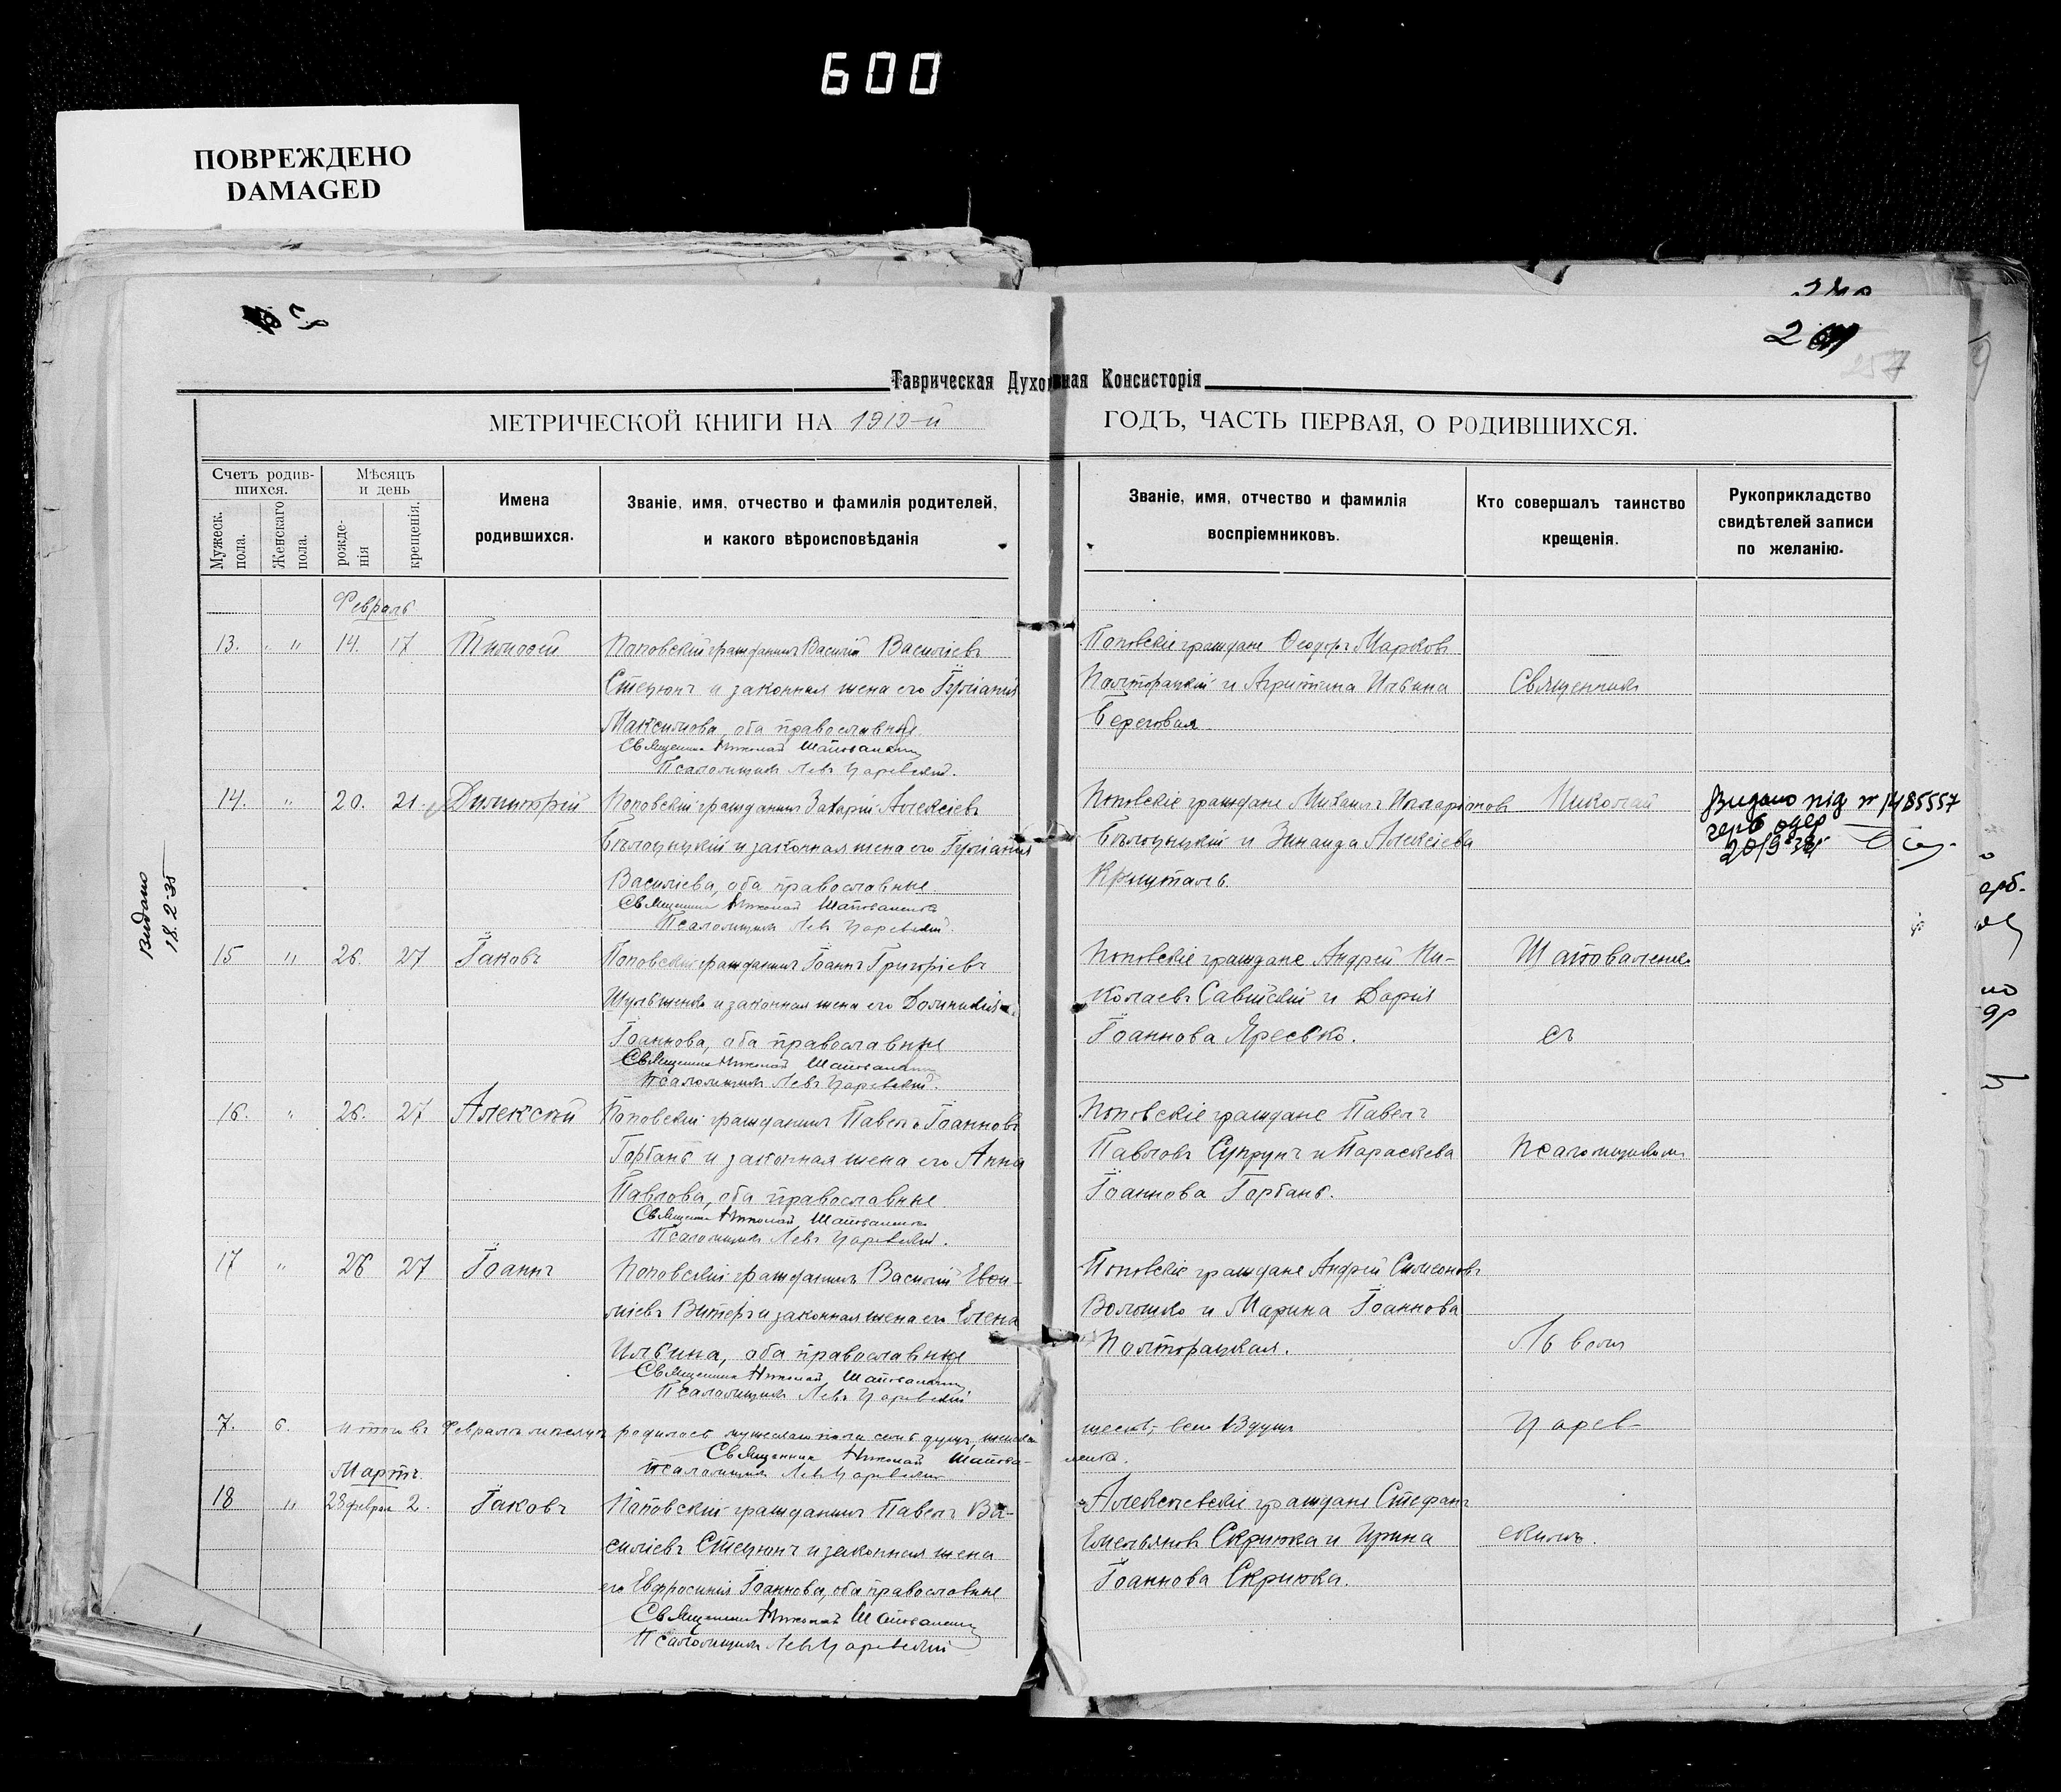 600
ПОВРЕЖДЕНО
DAMAGED
257
Таврическая Духовная Консисторія
МЕТРИЧЕСКОЙ КНИГИ НА 1919-й ГОДЪ, ЧАСТЬ ПЕРВАЯ, О РОДИВШИХСЯ.
Счетъ родив-
шихся.
Мужеск.
пола.
Женскаго
пола.
Мѣсяцъ
и день
рожде-
нія
крещенія.
Имена
родившихся.
Званіе, имя, отчество и фамилія родителей,
и какого вѣроисповѣданія
Званіе, имя, отчество и фамилія
воспріемниковъ.
Кто совершалъ таинство
крещенія.
Рукоприкладство
свидѣтелей записи
по желанію.
Февраль
13. " 14. 17 Тимоѳей Поповскій гражданинъ Василій Василіевъ
Стецюнъ и законная жена его Іуліанія
Максимова, оба православные
Священникъ Николай Шаповаленко
Псаломщикъ Левъ Царевскій.
Поповскіе граждане Ѳеодоръ Марковъ
Полторацкій и Агрипина Ильина
Береговая
14. " 20. 21. Димитрій Поповскій гражданинъ Захарій Алексіевъ
Бѣлоцицкій и законная жена его Іуліанія
Василіева, оба православные
Священникъ Николай Шаповаленко
Псаломщикъ Левъ Царевскій.
Поповскіе граждане Михаилъ Илларіоновъ
Бѣлоцицкій и Зинаида Алексіева
Кришталь.
Видано під № 1485557
герб одер
Видано
18.2-35
15 " 26. 27 Іаковъ Поповскій гражданинъ Іоаннъ Григоріевъ
Шульженко и законная жена его Домникія
Іоаннова, оба православные
Священникъ Николай Шаповаленко
Псаломщикъ Левъ Царевскій.
Поповскіе граждане Андрей Ни-
колаевъ Савійскій и Дарія
Іоаннова Яресько.
16. " 26. 27 Алексій Поповскій гражданинъ Павелъ Іоанновъ
Горбань и законная жена его Анна
Павлова, оба православные
Священникъ Николай Шаповаленко
Псаломщикъ Левъ Царевскій.
Поповскіе граждане Павелъ
Павловъ Супрунъ и Параскева
Іоаннова Горбань.
17 " 26 27 Іоаннъ Поповскій гражданинъ Василій Евѳи-
міевъ Витеръ и законная жена его Елена
Ильина, оба православные
Священникъ Николай Шаповаленко
Псаломщикъ Левъ Царевскій
Поповскіе граждане Андрей Симеоновъ
Волошко и Марина Іоаннова
Полторацкая.
7. 6. Итого въ Февралѣ мѣсяцѣ родилось мужеска пола семь душъ, женска шесть, всего 13 душъ
Священникъ Николай Шапова- ленко.
Псаломщикъ Левъ Царевскій
Мартъ.
18 " 28 февраля 2. Іаковъ Поповскій гражданинъ Павелъ Ва-
силіевъ Стецюнъ и законная жена
его Евфросинія Іоаннова, оба православные
Священникъ Николай Шаповаленко
Псаломщикъ Левъ Царевскій
Алексѣевскіе граждане Стефанъ
Емельяновъ Скрипка и Ирина
Іоаннова Скрипка.
Священникъ
Николай
Шаповаленко
съ
Псаломщикомъ
Львомъ
Царев-
скимъ.